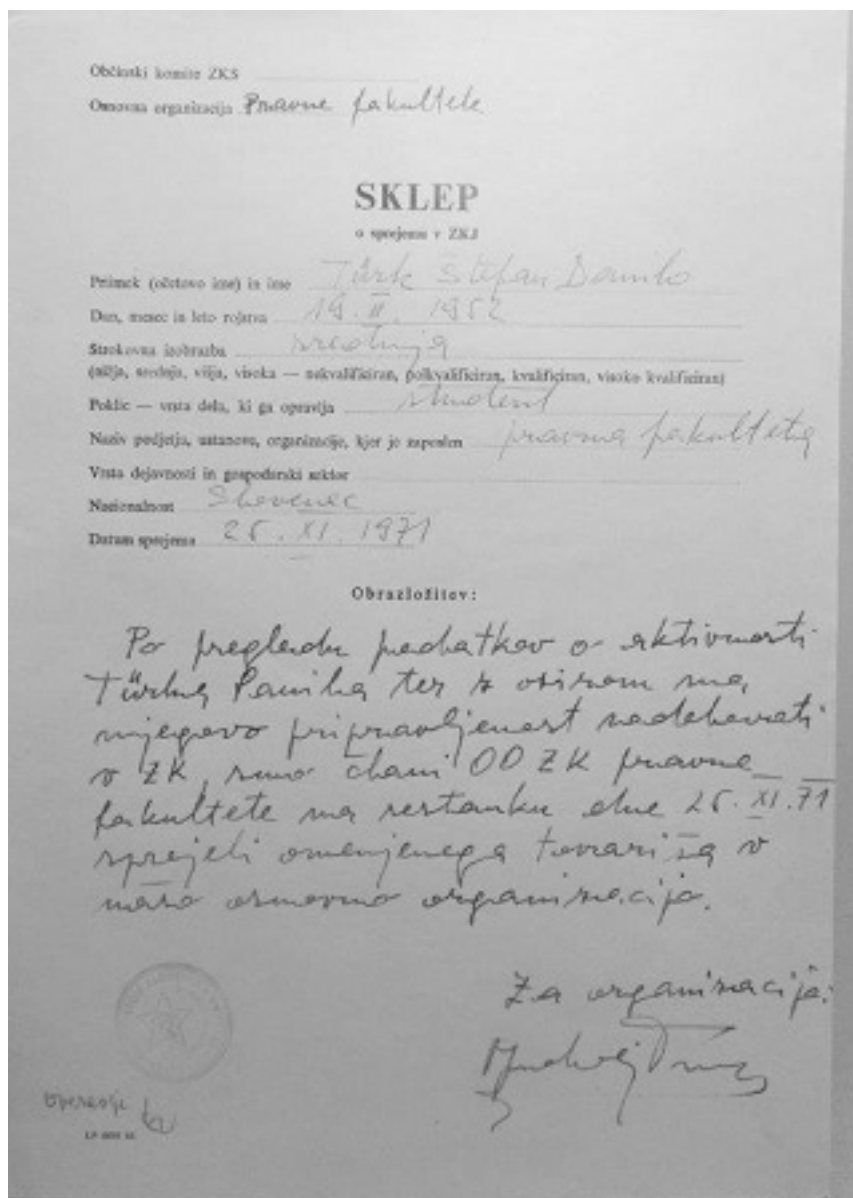 Občinski komite ZKS
Osnovna organizacija Pravne fakultete
SKLEP
o sprejemu v ZKJ
Priimek (očetovo ime) in ime Türk Štefan Danilo
Dan, mesec in leto rojstva 19. II. 1952
Strokovna izobrazba srednja
(nižja, srednja, višja, visoka — nekvalificiran, polkvalificiran, kvalificiran, visoko kvalificiran)
Poklic — vrsta dela, ki ga opravlja študent
Naziv podjetja, ustanove, organizacije, kjer je zaposlen pravna fakulteta
Vrsta dejavnosti in gospodarski sektor
Nacionalnost Slovenec
Datum sprejema 25. XI. 1971
Obrazložitev:
Po pregledu podatkov o aktivnosti
Türka Danila ter z ozirom na
njegovo pripravljenost nadelovati
v ZK, smo člani OO ZK pravne
fakultete na sestanku dne 25. XI. 71
sprejeli omenjenega tovariša v
našo osnovno organizacijo.
Za organizacijo: